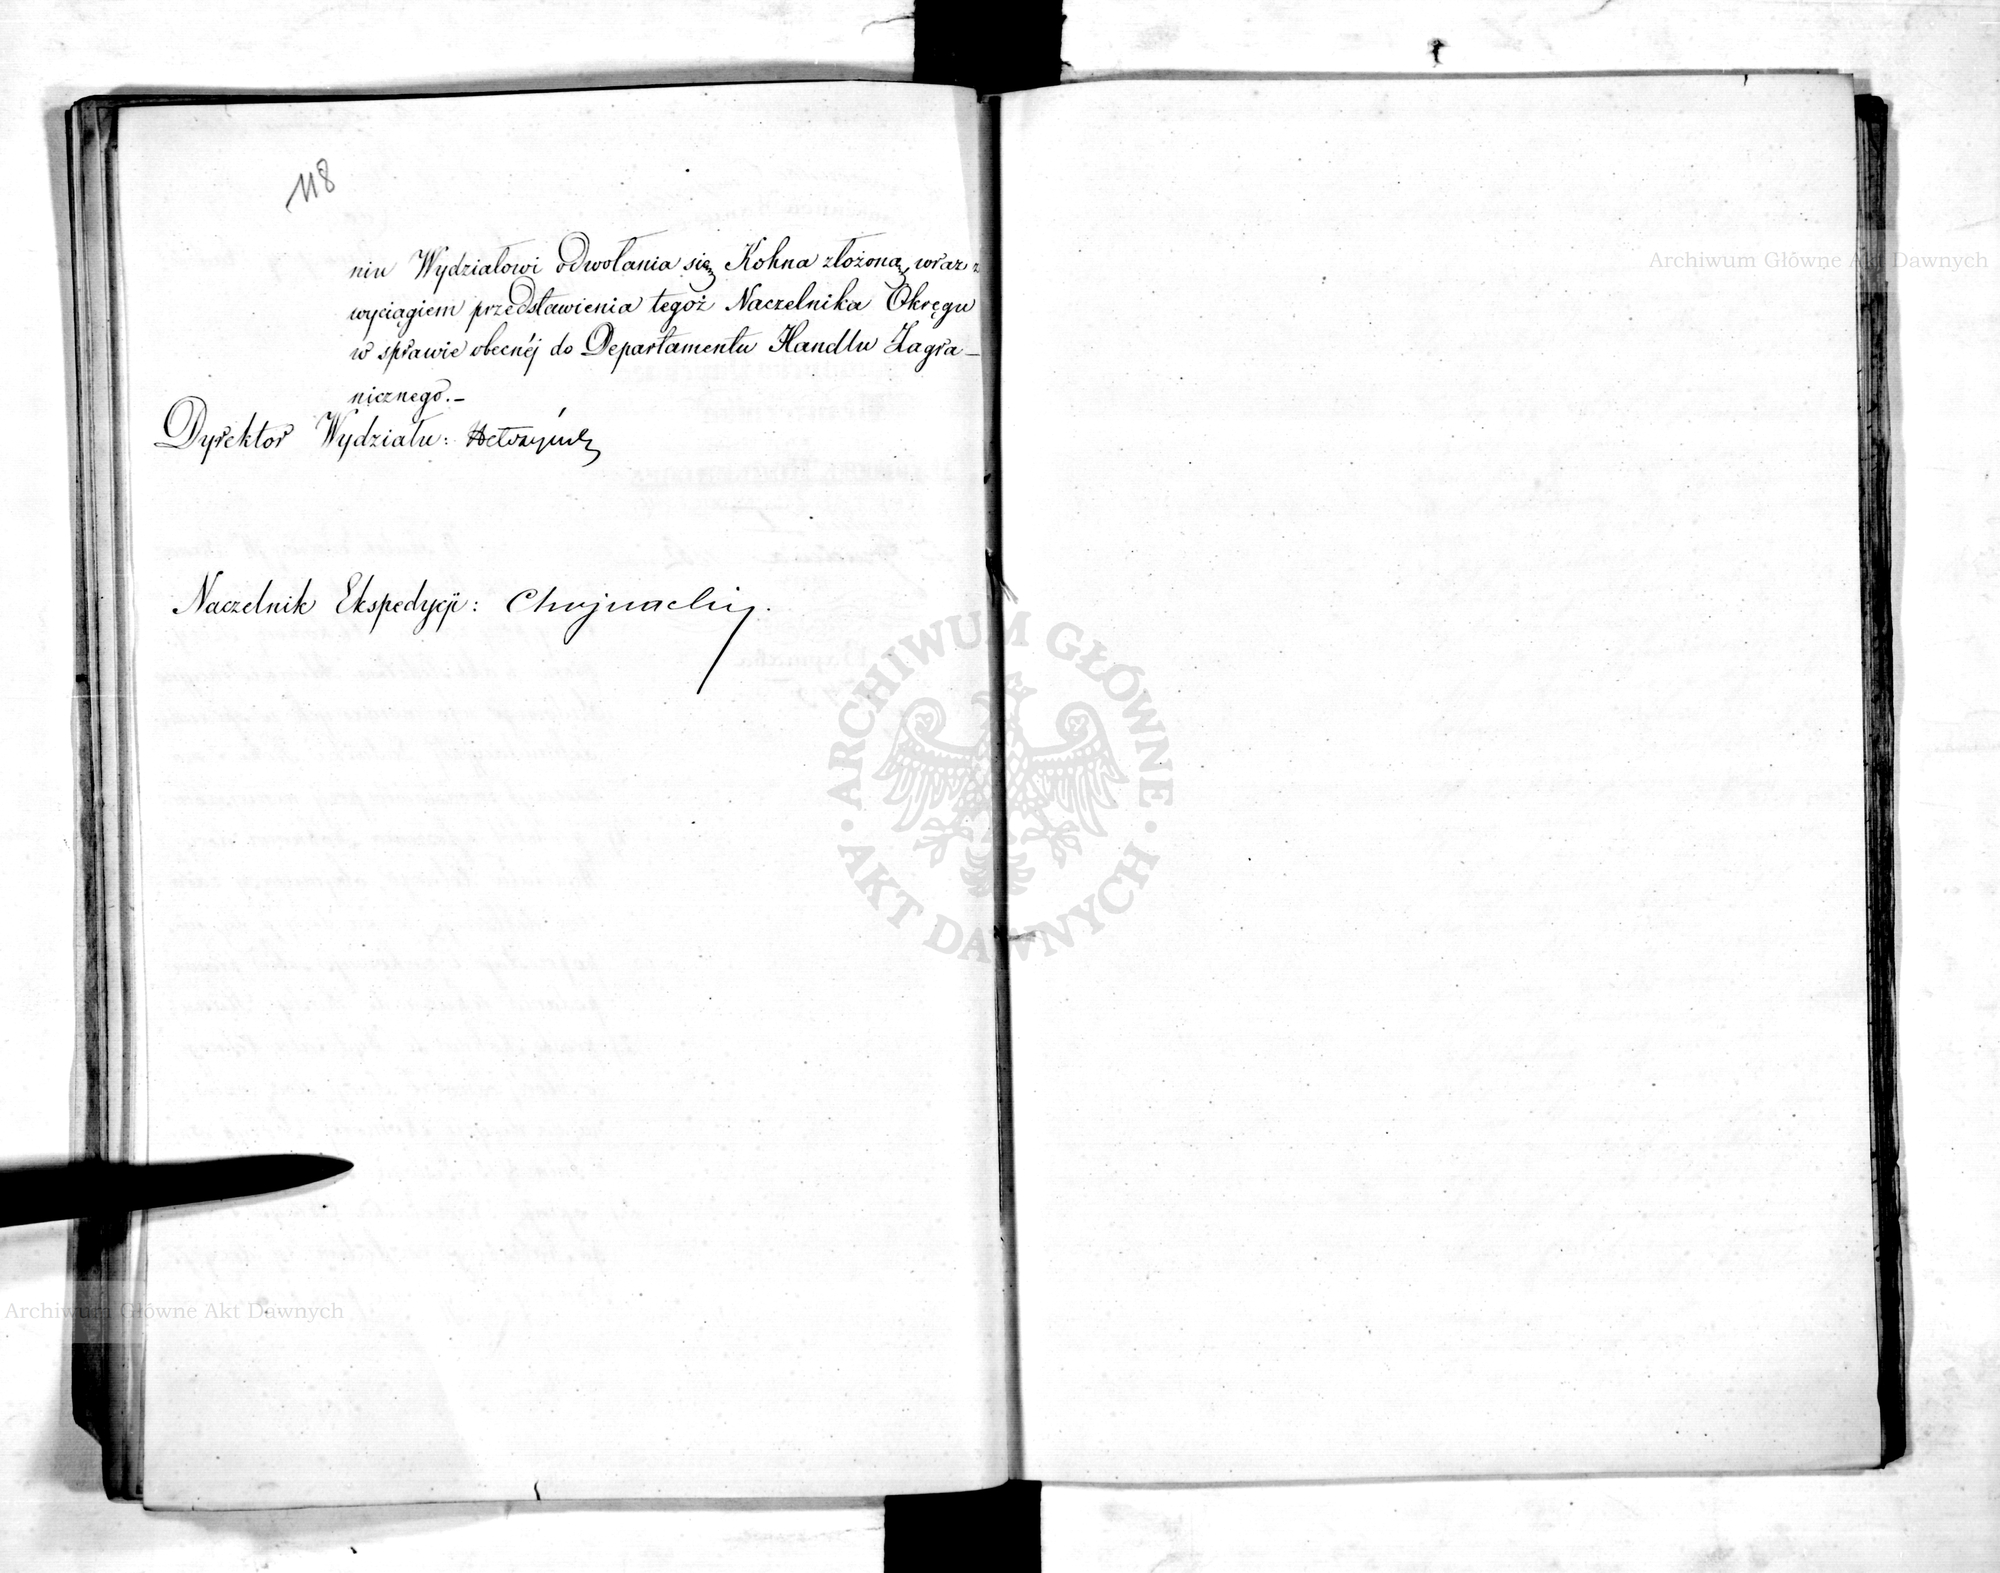 118
niu Wydziałowi odwołania się Kohna złożoną, wraz z
wyciągiem przedstawienia tegoż Naczelnika Okręgu
w sprawie obecnéj do Departamentu Handlu Zagra-
nicznego.-
Dyrektor Wydziału:
Naczelnik Ekspedycji: Chojnacki.
ARCHIWUM GŁÓWNE
AKT DAWNYCH
Archiwum Główne Akt Dawnych
Archiwum Główne Akt Dawnych